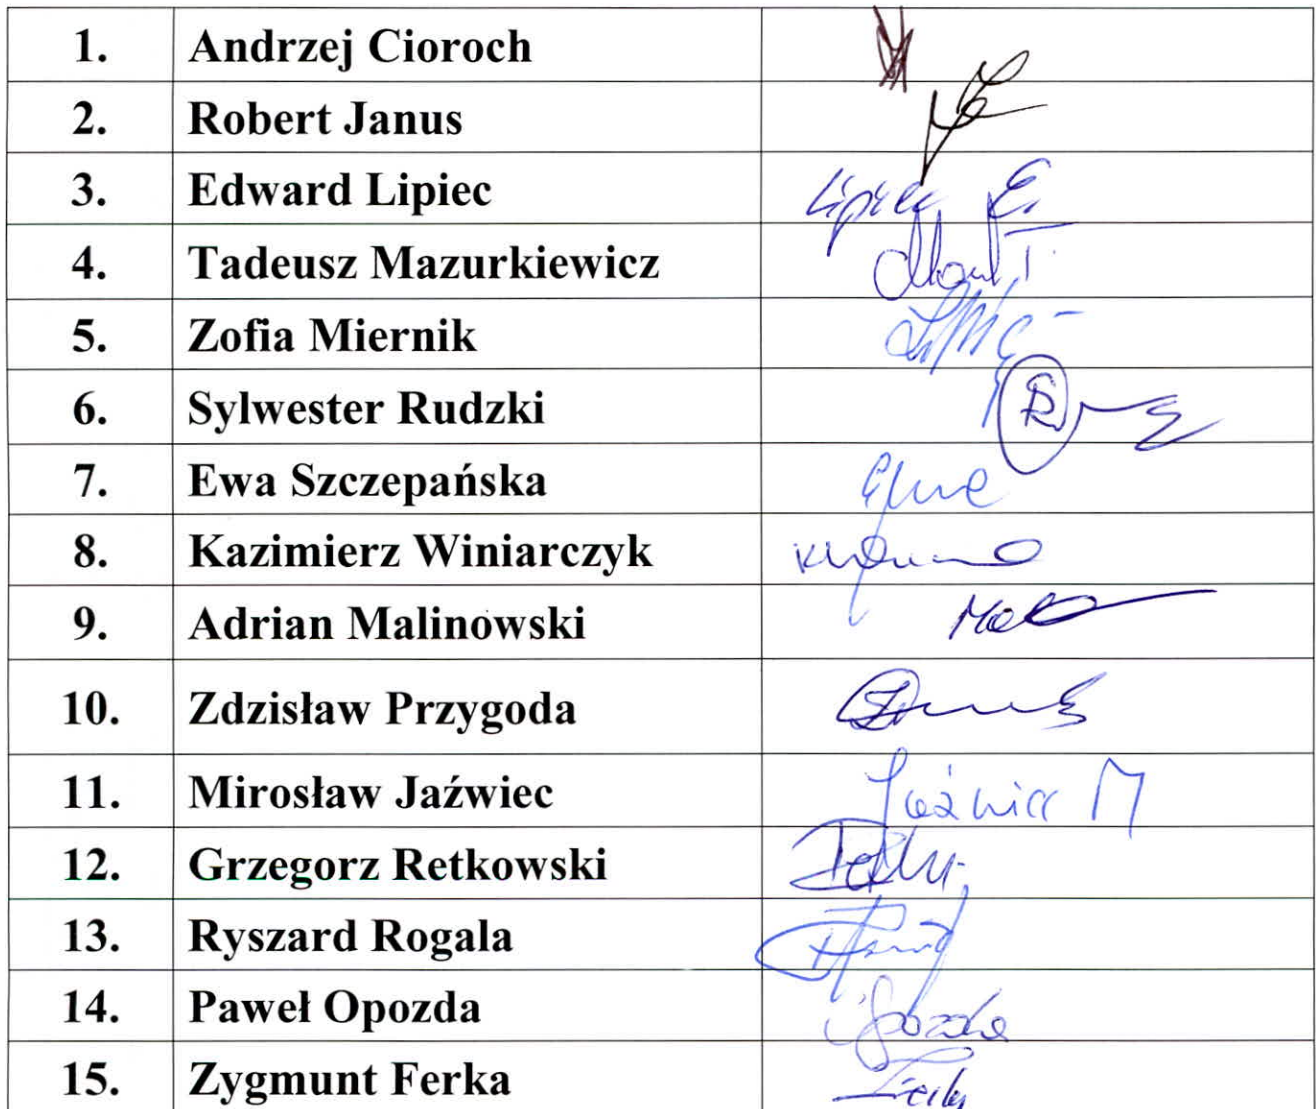 1. Andrzej Cioroch
2. Robert Janus
3. Edward Lipiec Lipiec E.
4. Tadeusz Mazurkiewicz
5. Zofia Miernik
6. Sylwester Rudzki
7. Ewa Szczepańska
8. Kazimierz Winiarczyk
9. Adrian Malinowski
10. Zdzisław Przygoda
11. Mirosław Jaźwiec Jaźwiec M
12. Grzegorz Retkowski
13. Ryszard Rogala
14. Paweł Opozda
15. Zygmunt Ferka